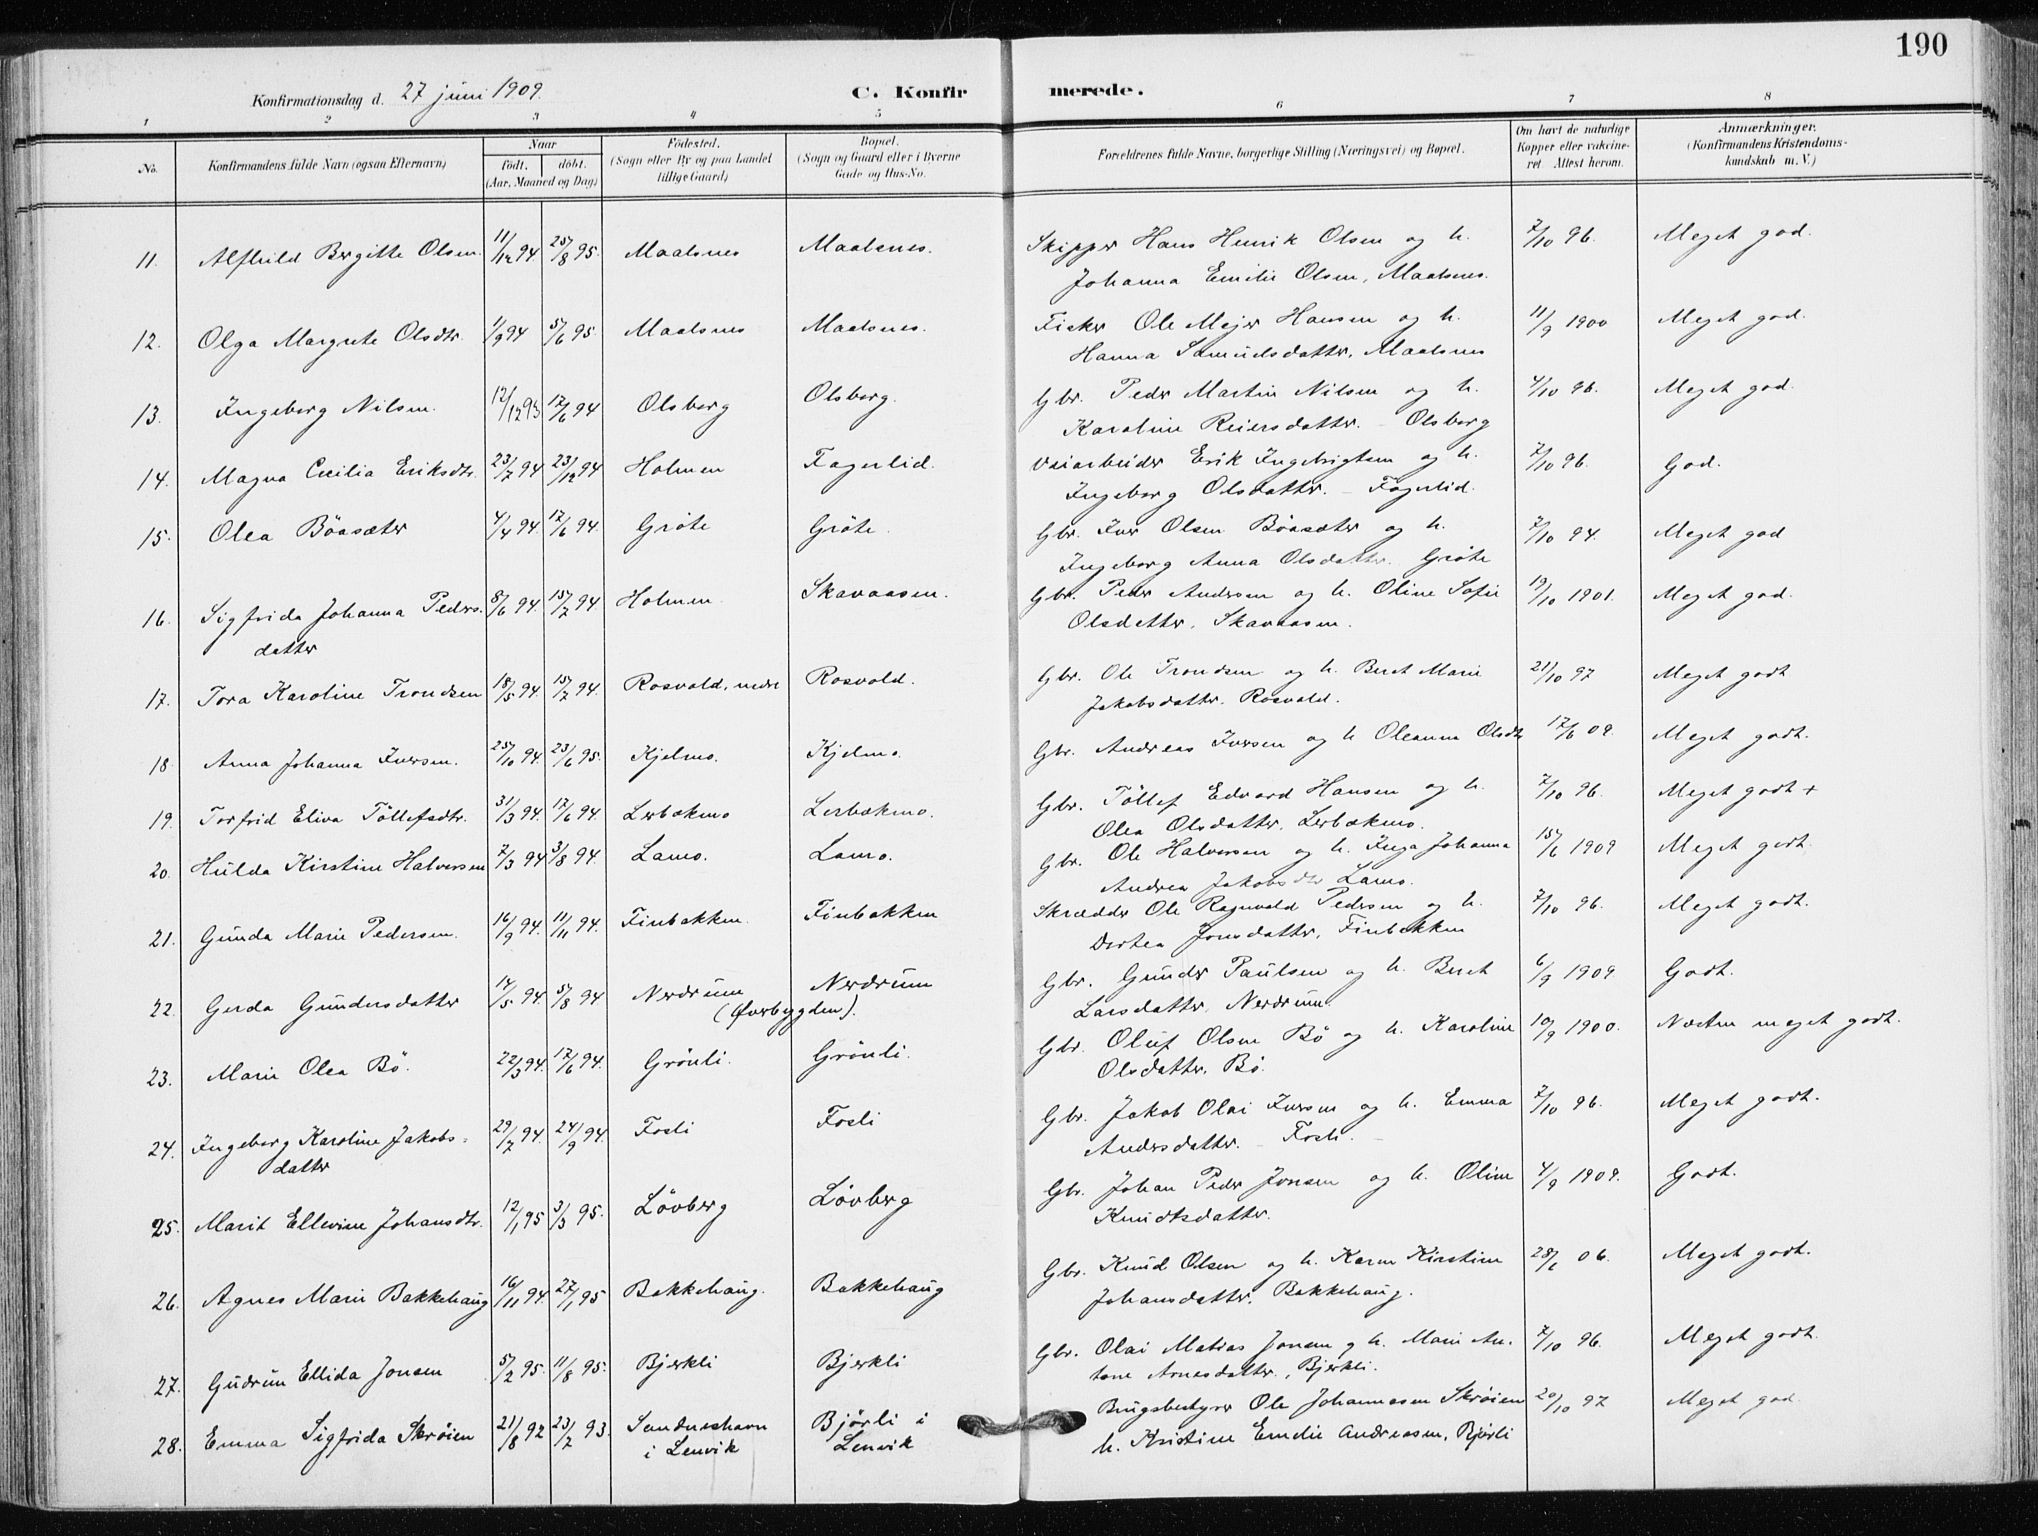 190
Konfirmationsdag d. 27 juni 1909.
C. Konfirmerede.
1 2 3 4 5 6 7 8
No.
Konfirmandens fulde Navn (ogsaa Efternavn)
Naar
født. døbt.
(Aar, Maaned og Dag)
Fødested.
(Sogn eller By og paa Landet
tillige Gaard)
Bopæl.
(Sogn og Gaard eller i Byerne
Gade og Hus-No.
Forældrenes fulde Navne, borgerlige Stilling (Næringsvei) og Bopæl.
Om havt de naturlige
Kopper eller vakcine-
ret Attest herom.
Anmærkninger.
(Konfirmandens Kristendoms-
kundskab m. V.)
11. Alfhild Bergitte Olsen. 11/12 94 25/8 95. Maalsnes Maalsnes. Skipper Hans Henrik Olsen og h. 7/10 96. Meget god.
Johanna Emilie Olsen, Maalsnes.
12. Olga Margrete Olsdtr. 1/9 94 5/6 95. Maalsnes Maalsnes. Fisker Ole Mejer Hansen og h. 11/9 1900 Meget god.
Hanna Samuelsdatter, Maalsnes
13. Ingeborg Nilsen. 12/12 93 17/6 94 Olsborg Olsborg. Gbr. Peder Martin Nilsen og h. 4/10 96. Meget god.
Karoline Reiersdatter. - Olsborg
14. Magna Cecilia Eriksdtr. 23/7 94 23/12 94 Holmen Fagerlid. Veiarbeider Erik Ingebrigtsen og h. 7/10 96. God.
Ingeborg Olsdatter. - Fagerlid.
15. Olea Böasæter 4/4 94. 17/6 94. Gröte Gröte. Gbr. Iver Olsen Böasæter og h. 7/10 94. Meget god
Ingeborg Anna Olsdatter. Gröte
16. Sigfrida Johanna Peders- 8/6 94. 15/7 94 Holmen. Skavaasen. Gbr. Peder Andersen og h. Oline Sofie 19/10 1901. Meget god.
datter Olsdatter, Skavaasen.
17. Tora Karoline Trondsen 18/5 94. 15/7 94. Rosvold, nedre Rosvold. Gbr. Ole Trondsen og h. Beret Marie 21/10 97 Meget godt
Jakobsdatter. Rosvold.
18. Anna Johanna Iversen. 25/10 94. 23/6 95. Kjelmo. Kjelmo. Gbr. Andreas Iversen og h Oleanna Olsdt 17/6 09. Meget godt.
19. Torfrid Eliva Töllefsdtr. 31/3 94. 17/6 94. Lerbækmo Lerbækmo. Gbr. Töllef Edvard Hansen og h. 7/10 96. Meget godt +
Olea Olsdatter, Lerbækmo.
20. Hulda Kirstine Halversen 7/3 94 3/8 94. Lamo. Lamo. Gbr. Ole Halversen og h. Inga Johanna 15/6 1909 Meget godt.
Andrea Jakobsdtr Lamo.
21. Gunda Marie Pedersen. 16/9 94. 11/11 94. Finbakken. Finbakken Skrædder Ole Ragnvald Pedersen og h. 7/10 96. Meget godt.
Dortea Jonsdatter, Finbakken
22. Gerda Gundersdatter 14/5 94. 5/8 94 Nerdrum Nerdrum Gbr. Gunder Paulsen og h. Beret 6/9 1909 Godt.
(Øverbygden). Larsdatter, Nerdrum.
23. Marie Olea Bö. 22/3 94. 17/6 94. Grönli. Grönli. Gbr. Oluf Olsen Bö og h. Karoline 10/9 1900. Næsten meget godt.
Olsdatter, Bö.
24. Ingeborg Karoline Jakobs- 29/7 94. 24/9 94. Fosli Fosli Gbr. Jakob Olai Iversen og h. Emma 7/10 96. Meget godt.
datter Andersdatter. - Fosli. -
25. Marit Ellevine Johansdtr. 12/1 95 3/3 95. Lövberg Lövberg Gbr. Johan Peder Jonsen og h. Oline 4/9 1909. Godt.
Knudtsdatter.
26. Agnes Marie Bakkehaug 16/11 94. 27/1 95 Bakkehaug. Bakkehaug Gbr. Knud Olsen og h. Karen Kirstine 28/6 06. Meget godt.
Johansdatter, Bakkehaug.
27. Gudrun Ellida Jonsen 5/2 95. 11/8 95. Bjerkli Bjerkli Gbr. Olai Matias Jonsen g h. Marie An- 7/10 96. Meget godt.
tone Arnesdatter., Bjerkli.
28. Emma Sigfrida Skröien 21/8 92 23/7 93. Sandneshavn Bjørli i Brugsbestyrer Ole Johannesen Skröien 20/10 97 Meget god
i Lenvik Lenvik h. Kristine Emelie Andreasen, Bjørli